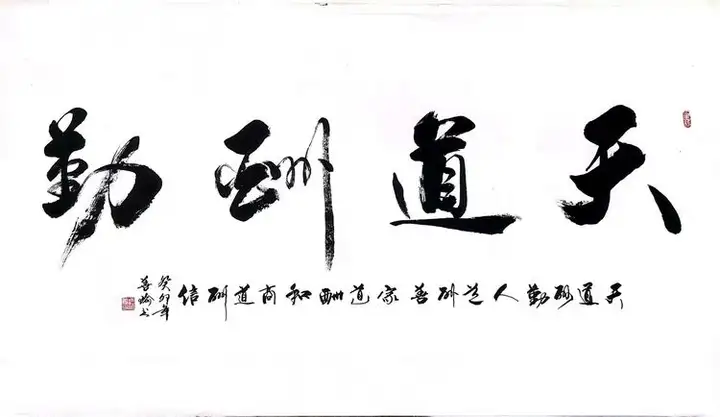 天道酬勤
天道酬勤人道酬善家道酬和商道酬信
癸卯年